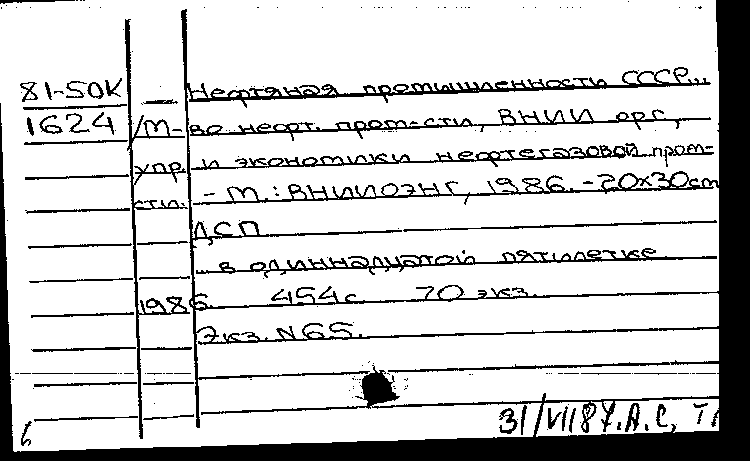 81-50К Нефтяная промышленности СССР...
1624 /М-во нефт. пром-сти, ВНИИ орг.,
упр. и экономики нефтегазовой пром-
сти. - М.: ВНИИОЭНГ, 1986. - 20х30cm
ДСП
в одиннадцатой пятилетке
1986. 454с 70 экз.
Экз. N65.
31/VII87. А.С,
6